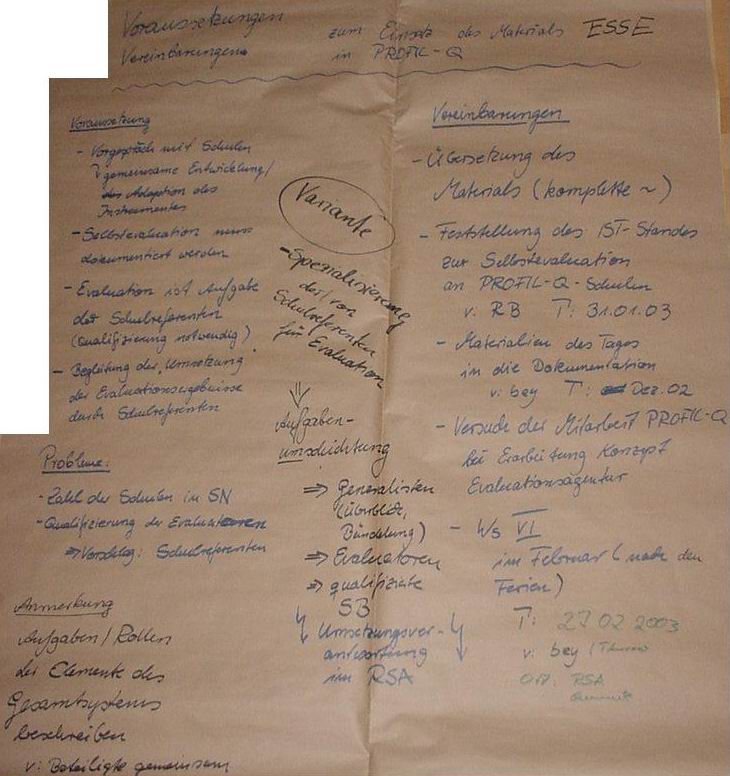 Voraussetzungen zum Einsatz des Materials ESSE
Vereinbarungen in PROFIL-Q
Voraussetzung
- Vorgespräch mit Schulen
gemeinsame Entwicklung/
des Adaption des
Instrumentes
- Selbstevaluation muss
dokumentiert werden
- Evaluation ist Aufgabe
der Schulreferenten
(Qualifizierung notwendig)
- Begleitung der "Umsetzung"
der Evaluationsergebnisse
durch Schulreferenten
Probleme:
- Zahl der Schulen in SN
- Qualifizierung der Evaluatoren
⇒ Vorschlag: Schulreferenten
Anmerkung
Aufgaben/Rollen
der Elemente des
Gesamtsystems
beschreiben
v: Beteiligte gemeinsam
Variante
- Spezialisierung
der/von
Schulreferenten
für Evaluation
⇓
Aufgaben-
umschichtung
⇒ Generalisten
(Überblick,
Bündelung)
⇒ Evaluatoren
⇒ qualifizierte
SB
Umsetzungsver-
antwortung
im RSA
Vereinbarungen
- Übersetzung des
Materials (komplette ~)
- Feststellung des IST-Standes
zur Selbstevaluation
an PROFIL-Q-Schulen
v: RB T: 31.01.03
- Materialien des Tages
in die Dokumentation
v: bey T: Dez. 02
- Versuch der Mitarbeit PROFIL-Q
bei Erarbeitung Konzept
Evaluationsagentur
- Ws VI
im Februar (nach den
Ferien)
T: 27 02 2003
v: bey
Ort: RSA